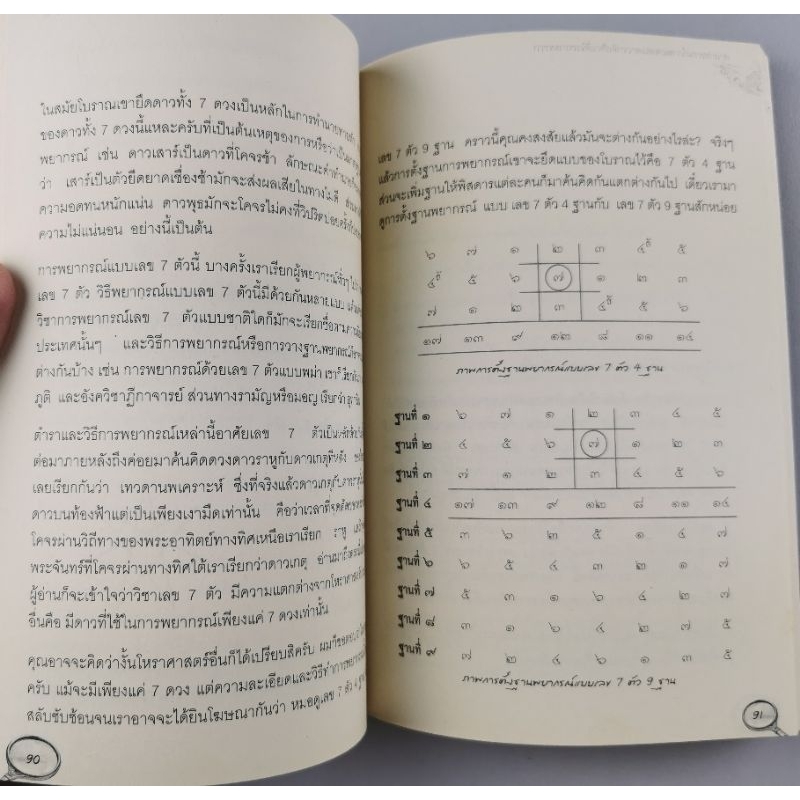 ในสมัยโบราณเขายึดดาวทั้ง 7 ดวงเป็นหลักในการทำนายทายทัก
ของดาวทั้ง 7 ดวงนี้แหละครับที่เป็นต้นเหตุของการหรือว่าเป็น
พยากรณ์ เช่น ดาวเสาร์เป็นดาวที่โคจรช้า ลักษณะคำทำนาย
ว่า เสาร์เป็นตัวยืดยาดเชื่องช้ามักจะส่งผลเสียในทางไม่ดี
ความอดทนหนักแน่น ดาวพุธมักจะโคจรไม่คงที่วิปริต
ความไม่แน่นอน อย่างนี้เป็นต้น
การพยากรณ์แบบเลข 7 ตัวนี้ บางครั้งเราเรียกผู้พยากรณ์
เลข 7 ตัว วิธีพยากรณ์แบบเลข 7 ตัวนี้มีด้วยกันหลายแบบ
วิชาการพยากรณ์เลข 7 ตัวแบบชาติใดก็มักจะเรียกชื่อตาม
ประเทศนั้นๆ และวิธีการพยากรณ์หรือการวางฐานพยากรณ์
ต่างกันบ้าง เช่น การพยากรณ์ด้วยเลข 7 ตัวแบบพม่า
ภูติ และอังควิชาฎีกาจารย์ ส่วนทางรามัญหรือมอญ
ตำราและวิธีการพยากรณ์เหล่านี้อาศัยเลข 7 ตัวเป็น
ต่อมาภายหลังถึงค่อยมาค้นคิดดวงดาวราหูกับดาวเกตุ
เลยเรียกกันว่า เทวดานพเคราะห์ ซึ่งที่จริงแล้วดาวเกตุกับ
ดาวบนท้องฟ้าแต่เป็นเพียงเงามืดเท่านั้น คือว่าเวลาที่
โคจรผ่านวิถีทางของพระอาทิตย์ทางทิศเหนือเราเรียก ราหู
พระจันทร์ที่โคจรผ่านทางทิศใต้เราเรียกว่าดาวเกตุ อ่านมาถึง
ผู้อ่านก็จะเข้าใจว่าวิชาเลข 7 ตัว มีความแตกต่างจากโหราศาสตร์
อื่นคือ มีดาวที่ใช้ในการพยากรณ์เพียงแค่ 7 ดวงเท่านั้น
คุณอาจจะคิดว่างั้นโหราศาสตร์อื่นก็ได้เปรียบสิครับ
ครับ แม้จะมีเพียงแค่ 7 ดวง แต่ความละเอียดและวิธีทำการพยากรณ์
สลับซับซ้อนจนเราอาจจะได้ยินโฆษณากันว่า หมอดูเลข 7 ตัว 4 ฐาน
90
เลข 7 ตัว 9 ฐาน คราวนี้คุณคงสงสัยแล้วมันจะต่างกันอย่างไรล่ะ? จริงๆ
แล้วการตั้งฐานการพยากรณ์เขาจะยึดแบบของโบราณไว้คือ 7 ตัว 4 ฐาน
ส่วนจะเพิ่มฐานให้พิสดารแต่ละคนก็มาค้นคิดกันแตกต่างกันไป เดี๋ยวเรามา
ดูการตั้งฐานพยากรณ์ แบบ เลข 7 ตัว 4 ฐานกับ เลข 7 ตัว 9 ฐานสักหน่อย
๖ ๗ ๑ ๒ ๓ ๔ ๕
๔ ๕ ๖ ๗ ๑ ๒ ๓
๗ ๑ ๒ ๓ ๔ ๕ ๖
๑๗ ๑๓ ๙ ๑๒ ๘ ๑๑ ๑๔
ภาพการตั้งฐานพยากรณ์แบบเลข 7 ตัว 4 ฐาน
ฐานที่ ๑ ๖ ๗ ๑ ๒ ๓ ๔ ๕
ฐานที่ ๒ ๔ ๕ ๖ ๗ ๑ ๒ ๓
ฐานที่ ๓ ๗ ๑ ๒ ๓ ๔ ๕ ๖
ฐานที่ ๔ ๑๗ ๑๓ ๙ ๑๒ ๘ ๑๑ ๑๔
ฐานที่ ๕ ๓ ๖ ๒ ๕ ๑ ๔ ๗
ฐานที่ ๖ ๖ ๕ ๔ ๓ ๒ ๑ ๗
ฐานที่ ๗ ๕ ๓ ๑ ๖ ๔ ๒ ๗
ฐานที่ ๘ ๓ ๑ ๖ ๔ ๒ ๗ ๕
ฐานที่ ๙ ๗ ๒ ๔ ๖ ๑ ๓ ๕
ภาพการตั้งฐานพยากรณ์แบบเลข 7 ตัว 9 ฐาน
91